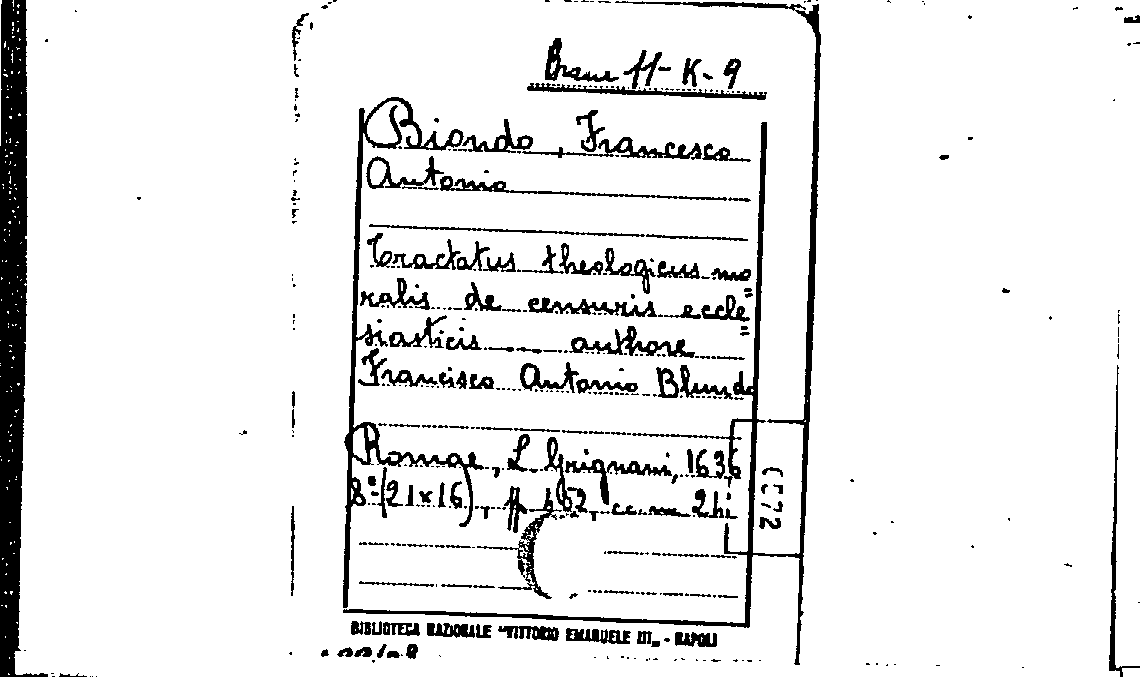 Branc 11-K-9
Biondo, Francesco
Antonio
Tractatus theologicus mo
ralis de censuris eccle"
siasticis ... authore "
Francisco Antonio Blundo
Romae, L. Grignani, 1636
8°-(21x16), pp 452, cc. nn
CC72
BIBLIOTECA NAZIONALE "VITTORIO EMANUELE III„ - NAPOLI